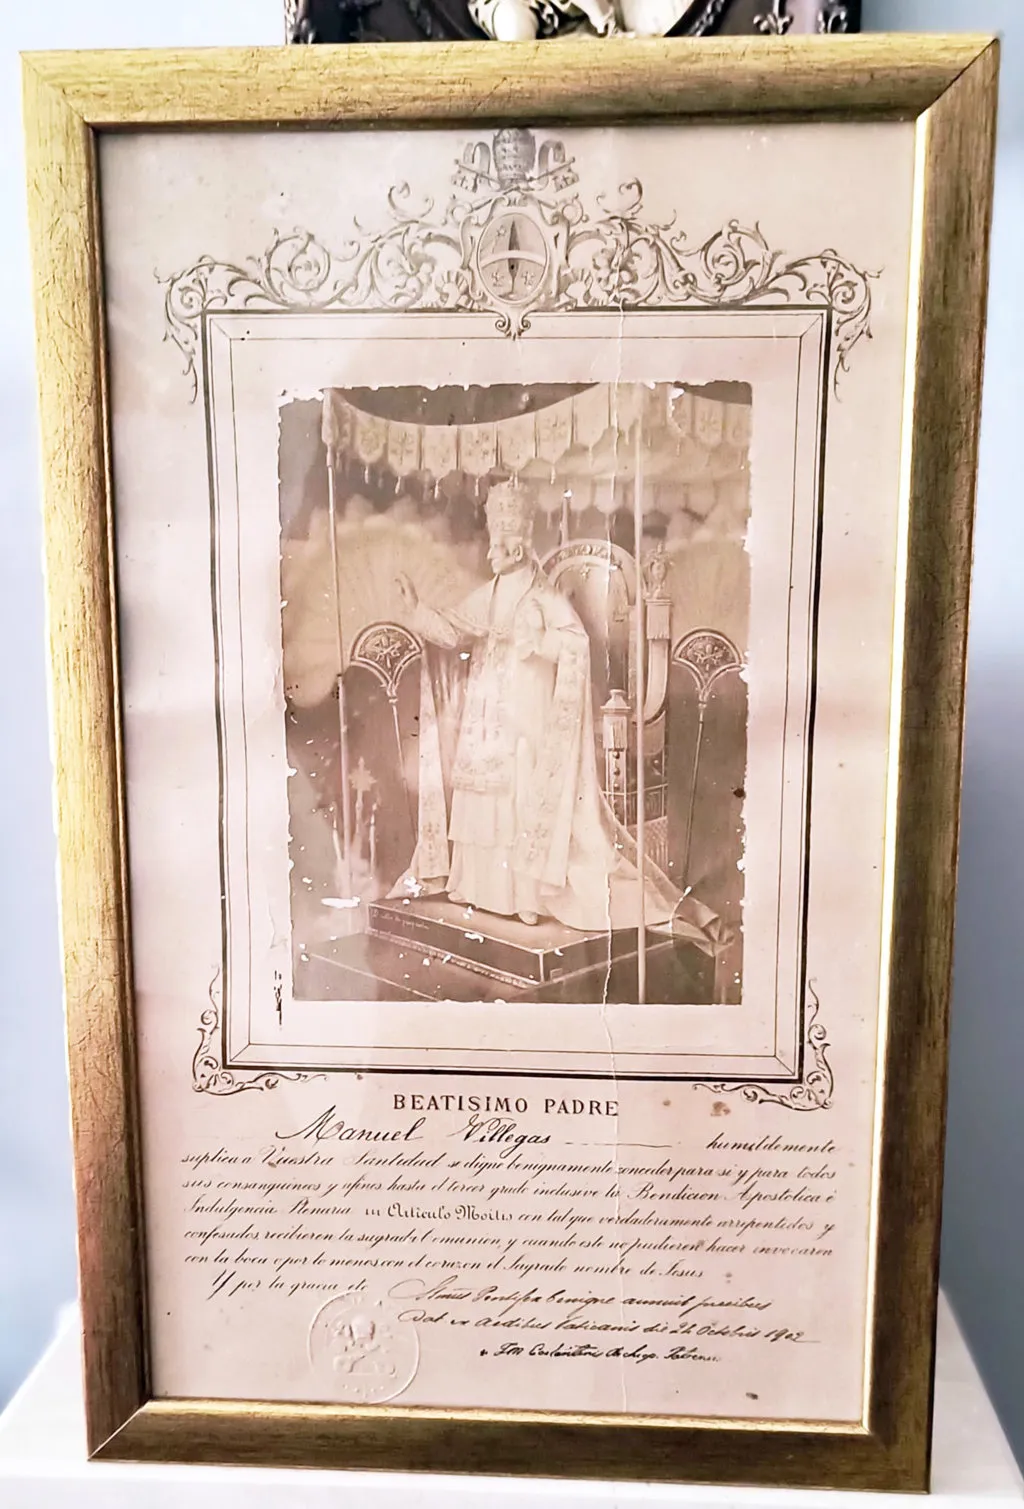 BEATISIMO PADRE
Manuel Villegas humildemente
suplica a Vuestra Santidad se digne benignamente conceder para si y para todos
sus consanguineos y afines hasta el tercer grado inclusive la Bendicion Apostolica é
Indulgencia Plenaria in Articulo Mortis con tal que verdaderamente arrepentidos y
confesados, recibieren la sagrada Comunion, y cuando esto no pudieren hacer invocaren
con la boca o por lo menos con el corazon el Sagrado nombre de Jesus
Y por la gracia etc
Pontifex benigne annuit precibus
Dat ex Aedibus Vaticanis die 24 Octobris 1902
Archiep.